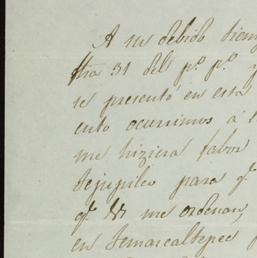 A su debido tiem
fha 31 del p.º p.º y
se presentó en esta
ento ocurrimos á
me hiziera fabor
Tejupilco para q.e
q.e VV me ordenan,
en Temascaltepec